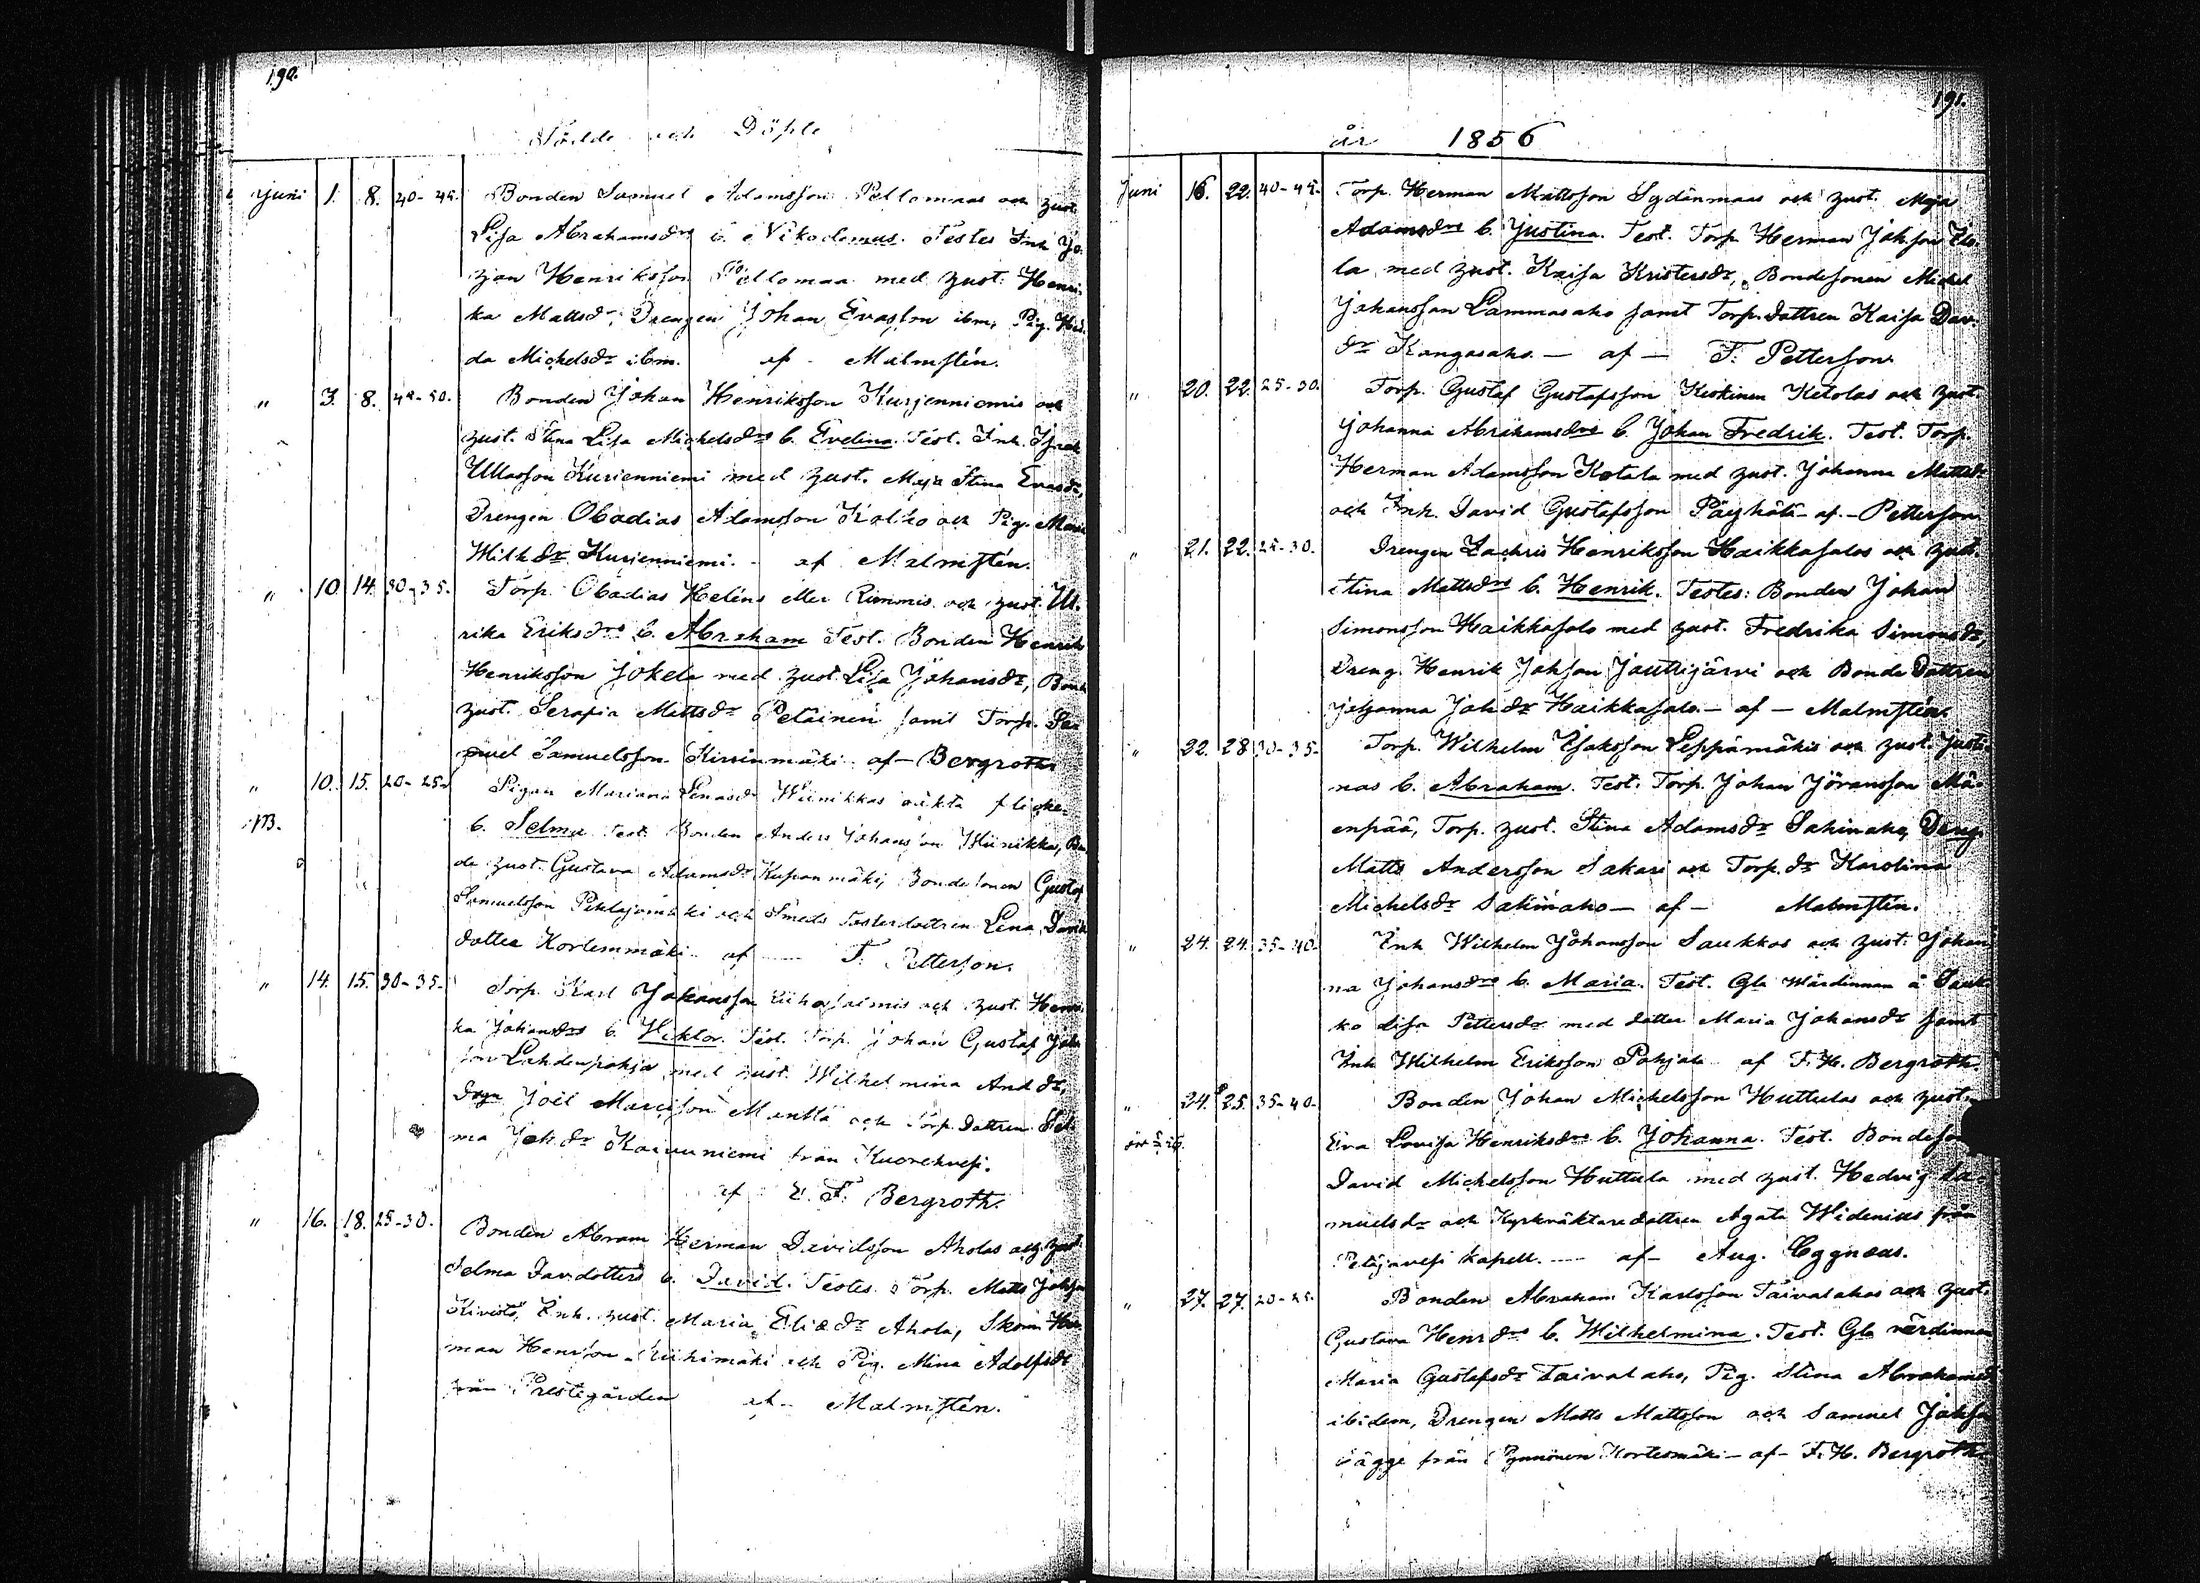 190.
Födde och Döpte
Juni 1. 8. 40-45. Bonden Samuel Adamsson Pellomaas och zust.
Lisa Abrahamsdrs b. Nikodemus. Testes Inh. Jö-
zjan Henriksson Pellomaa med zust. Henri-
ka Mattsdr, Drengen Johan Evasson ibm, Pig. Hed-
da Michelsdr ibm. af - Malmstén.
" 3. 8. 45-50. Bonden Johan Henriksson Kurjenniemis och
zust. Stina Lisa Michelsdrs b. Evelina. Test. Inh. Isak
Ullasson Kurienniemi med zust. Maja Stina Evasdr,
Drengen Obadias Adamsson Kalho och Pig. Maria
Wilh.dr Kurjenniemi. - af Malmstén.
" 10 14. 30-35. Torp. Obadias Heléns eller Rimmis och zust. Ul-
rika Eriksdrs b. Abraham Test. Bonden Henrik
Henriksson Jokela med zust. Lisa Johansdr, Bond
zust. Serafia Mattsdr Petäinen samt Torp. Sa-
muel Samuelsson Kirrinmäki af - Bergroth
" 10. 15. 20-25. Pigan Mariana Lenasdr Wiinikkas oäkta flicka
b. Selma Test. Bonden Anders Johansson Wiinikka, Bon-
de zust. Gustava Adamsdr Kupanmäki, Bondesonen Gustaf
Samuelsson Pihlajamäki och Smeds fosterdottren Lena David
dotter Kortemmäki af F. Petterson.
" 14. 15. 30-35. Torp. Karl Johansson Riihosalmis och zust. Henri-
ka Johansdrs b. Wiktor. Test. Torp. Johan Gustaf Joh-
son Lehdenpohja med zust. Wilhelmina And.dr,
Drgn Joel Marcisson Mantta och Torp.dottren Sel-
ma Joh.dr Koivuniemi från Kuorehvesi.
af F. Bergroth.
" 16. 18. 25-30. Bonden Abram Herman Davidsson Aholas och zust.
Selma Davdotters b. David. Testes: Torp. Matts Johsson
Kivistö, Inh. zust. Maria Eliædr Ahola, Skom. Her-
man Henrson Riihimäki och Pig. Mina Adolfsdr
från Prestegården af - Malmstén.
191.
år 1856
Juni 16. 22. 40-45. Torp. Herman Mattsson Sydänmaas och zust. Maja
Adamsdrs b. Justina. Test. Torp. Herman Johsson
la med zust. Kaisa Kristersdr, Bondesonen Michel
Johansson Lammasaho samt Torp.dottren Kaisa Dav.
dr Kangasaho. — af — F. Petterson
" 20. 22. 25-30. Torp. Gustaf Gustafsson Keskinen Ketolas och zust.
Johanna Abrahamsdrs b. Johan Fredrik. Test. Torp.
Herman Adamsson Ketola med zust. Johanna Mattsdr
och Inh. David Gustafsson - af. - Petterson
" 21. 22. 25-30. Drengen Zachris Henriksson Haikkasalos och zust.
Stina Mattsdrs b. Henrik. Testes: Bonden Johan
Simonsson Haikkasalo med zust. Fredrika Simonsdr,
Dreng. Henrik Johsson Jouttijärvi och Bonde Dottren
Johanna Joh.dr Haikkasalo. — af — Malmstén.
" 22. 28 30-35. Torp. Wilhelm Isaksson Leppämäkis och zust. Justi-
nas b. Abraham. Test. Torp. Johan Jöransson Mä-
enpää, Torp. zust. Stina Adamsdr Sahinaho, Dreng.
Matts Andersson Sakari och Torp.dr Karolina
Michelsdr Sahinaho — af — Malmstén.
" 24. 24. 35-40. Inh. Wilhelm Johansson Saukkos och zust. Johan-
na Johansdrs b. Maria. Test. Gla Wärdinnan å Sauk-
ko Lisa Pettersdr med dotter Maria Johansdr samt
Inh Wilhelm Eriksson Pohjala af F. H. Bergroth.
" 24. 25. 35-40. Bonden Johan Michelsson Huttulas och zust.
Eva Lovisa Henriksdrs b. Johanna. Test. Bondeson
David Michelsson Huttula med zust. Hedvig Sa-
muelsdr och Kyrkväktaredottren Agata Widenius från
Petäjävesi Kapell. — af — Aug. Cygnæus.
" 27. 27. 20-25. Bonden Abraham Karlsson Taivalahos och zust.
Gustava Henrdrs b. Wilhelmina. Test. Gla värdinnan
Maria Gustafsdr Taivalaho, Pig. Stina Abrahamsd
ibidem, Drengen Matts Mattsson och Samuel Johsson
bägge från Pynnönen Kortesmäki — af — F. H. Bergroth